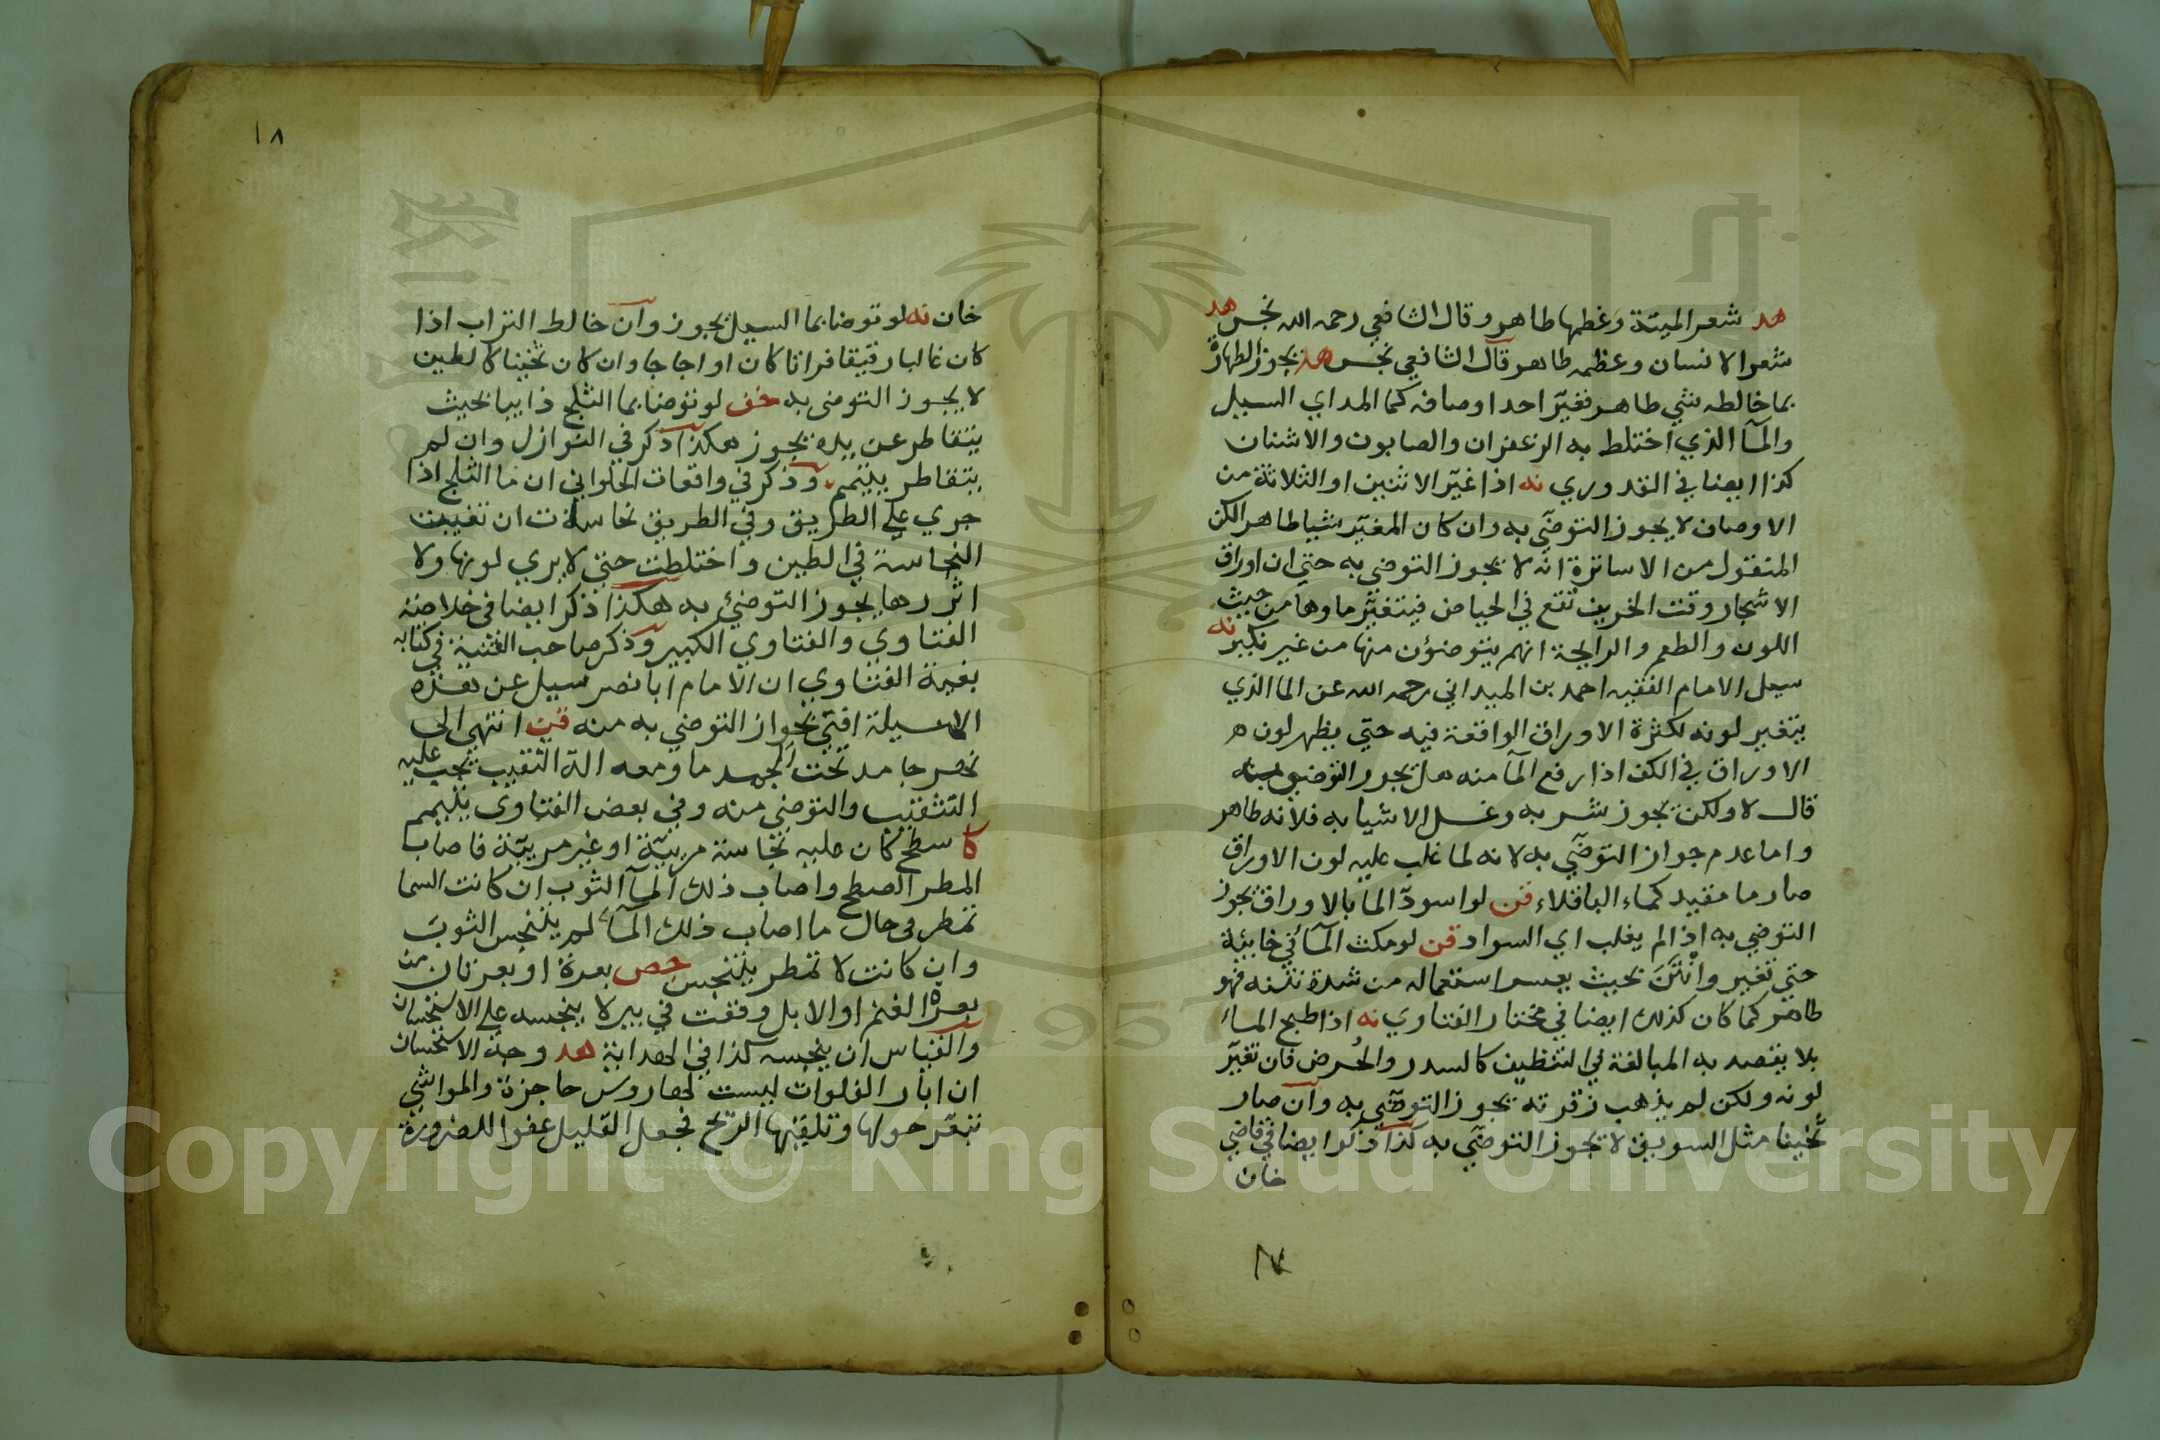 هد شعر الميتة وعظمها طاهر وقال الشافعي رحمه الله نجس هد
شعر الانسان وعظمه طاهر قال الشافعي نجس هد يجوز الطهارة
بما خالطه شي طاهر فغير احد اوصافه كما المد اي السيل
والمآ الذي اختلط به الزعفران والصابون والاشنان
كذا ايضا في القدوري نه اذا غير الاثنين او الثلاثة من
الاوصاف لا يجوز التوضي به وان كان المغير شيا طاهر الكن
المنقول من الاساتزة انه لا يجوز التوضي به حتي ان اوراق
الاشجار وقت الخريف تقع في الحياض فيتغير ماوها من حيث
اللون والطعم والرايحة انهم يتوضؤن منها من غير نكير نه
سيل الامام الفقيه احمد بن الميداني رحمه الله عن الما الذي
يتغير لونه لكثرة الاوراق الواقعة فيه حتي يظهر لون
الاوراق في الكف اذا رفع المآ منه هل يجوز التوضي به
قال لا ولكن يجوز شربه وغسل الاشيا به فلانه طاهر
واما عدم جواز التوضي به لانه لما غلب عليه لون الاوراق
صار ما مقيد كماء الباقلاء قن لو اسود الما بالاوراق يجوز
التوضي به اذا لم يغلب اي السواد قن لو مكث المآ في خابئة
حتي تغير وانتن بحيث يعسر استعماله من شدة نتنه فهو
طاهر كما كان كذلك ايضا في مختار الفتاوي نه اذا طبخ الماء
بلا يقصد به المبالغة في التنظيف كالسدر والحرض فان تغير
لونه ولكن لم يذهب رقته يجوز التوضي به وان صار
ثخينا مثل السويق لا يجوز التوضي به كذا ذكر ايضا في قاضي
خان
١٧
١٨
خان نه لو توضا بما السيل يجوز وان خالط التراب اذا
كان غالبا رقيقا فراتا كان او اجاجا وان كان ثخينا كالطين
لا يجوز التوضي به خف لو توضا بما الثلج ذايبا بحيث
يتقاطر عن يده يجوز هكذا ذكر في النوازل وان لم
يتقاطر يتيمم وذكر في واقعات الحلواني ان ما الثلج اذا
جري علي الطريق وفي الطريق نجاسات ان تغيبت
النجاسة في الطين واختلطت حتي لا يري لونها ولا
اثرها يجوز التوضئ به هكذا ذكر ايضا في خلاصة
الفتاوي والفتاوي الكبير وذكر صاحب القنية في كتابه
بغية الفتاوي ان الامام ابا نصر سيل عن هذه
الاسيلة افتي بجواز التوضي به منه قن انتهي الي
نهر جامد تحت الجمد ما ومعه الة التثقيب يجب عليه
التثقيب والتوضي منه وفي بعض الفتاوي يتيمم
كا سطح كان عليه نجاسة مريئة او غير مريئة فاصاب
المطر السطح واصاب ذلك المآ الثوب ان كانت السما
تمطر في حال ما اصاب ذلك المآء لم يتنجس الثوب
وان كانت لا تمطر يتنجس حص بعرة او بعرتان من
بعرة الغنم او الابل وقعت في بير لا ينجسه علي الاستحسان
والقياس ان ينجسه كذا في الهداية هد وجه الاستحسان
ان ابار الفلوات ليست لها روس حاجزة والمواشي
تبعر حولها وتلقيها الريح فجعل القليل عفوا للضرورة
Copyright © King Saud University
1957